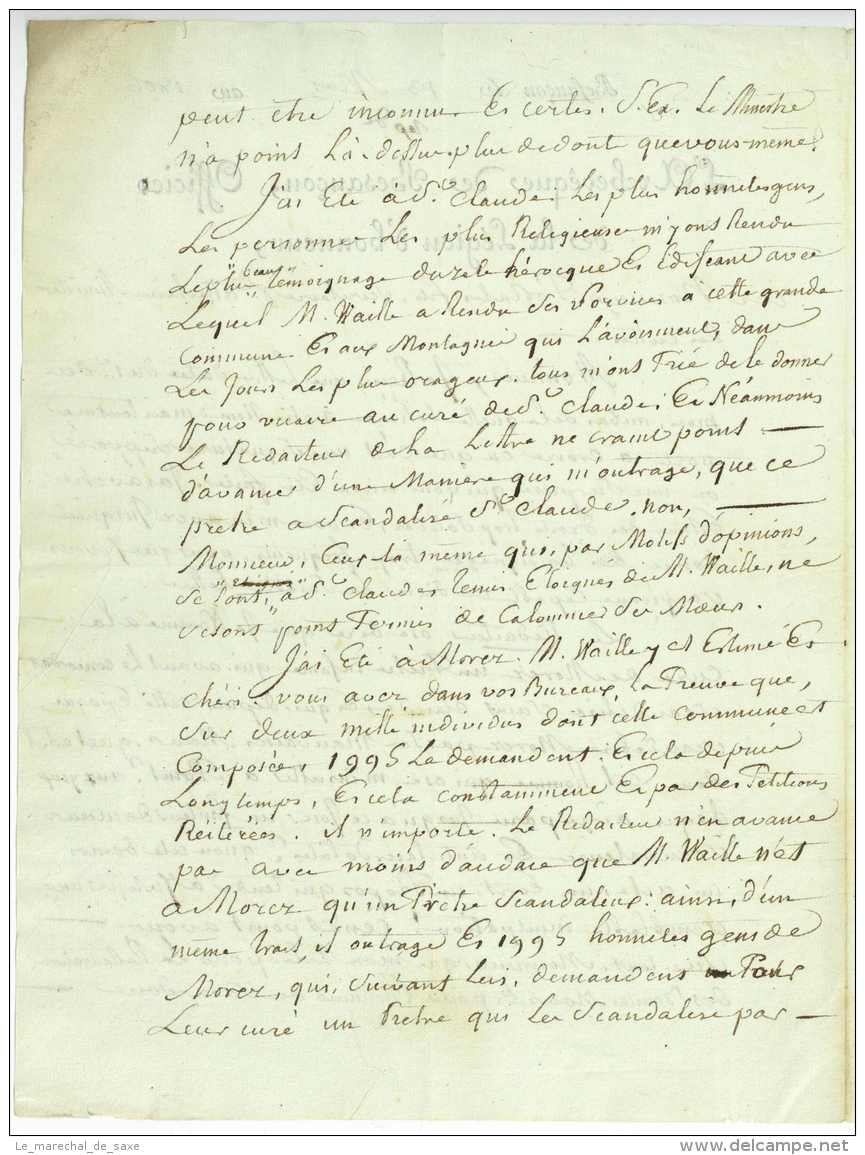 peut être inconnu. Et certes, S. Ex. Le Ministre
n'a point Là-dessus plus de doute que vous-même.
J'ai Eté à St. Claude: Les plus honnêtes gens,
Les personnes Les plus Religieuses m'y ont Rendu
Le plus beau témoignage du zele héroique Et Edifiant avec
Lequel M. Waille a Rendu des services à cette grande
Commune Et aux Montagnes qui L'avoisinent, dans
Les Jours Les plus orageux. tous m'ont Prié de le donner
pour vicaire au curé de St. Claude; Et Néanmoins
Le Redacteur de La Lettre ne craint point —
d'avancer d'une Manière qui m'outrage, que ce
prêtre a Scandalisé St. Claude. non, —
Monsieur, Ceux-là même qui, par Motifs d'opinions,
se sont, à St. Claude, tenus Eloignés de M. Waille, ne
se sont point Permis de Calomnier ses Mœurs.
J'ai Eté à Morez. M. Waille y est Estimé Et
chéri. vous avez dans vos Bureaux, La Preuve que,
sur deux mille individus dont cette Commune est
Composée, 1995 Le demandent: Et cela depuis
Longtemps, Et cela constamment Et par des Petitions
Réitérées. il n'importe. Le Redacteur n'en avance
pas avec moins d'audace que M. Waille n'est
à Morez qu'un Prêtre Scandaleux: ainsi, d'un
meme trait, il outrage Et 1995 honnetes gens de
Morez, qui, suivant Lui, demandent Pour
Leur curé un Prêtre qui Les Scandalise par —
Le_marechal_de_saxe
www.delcampe.net